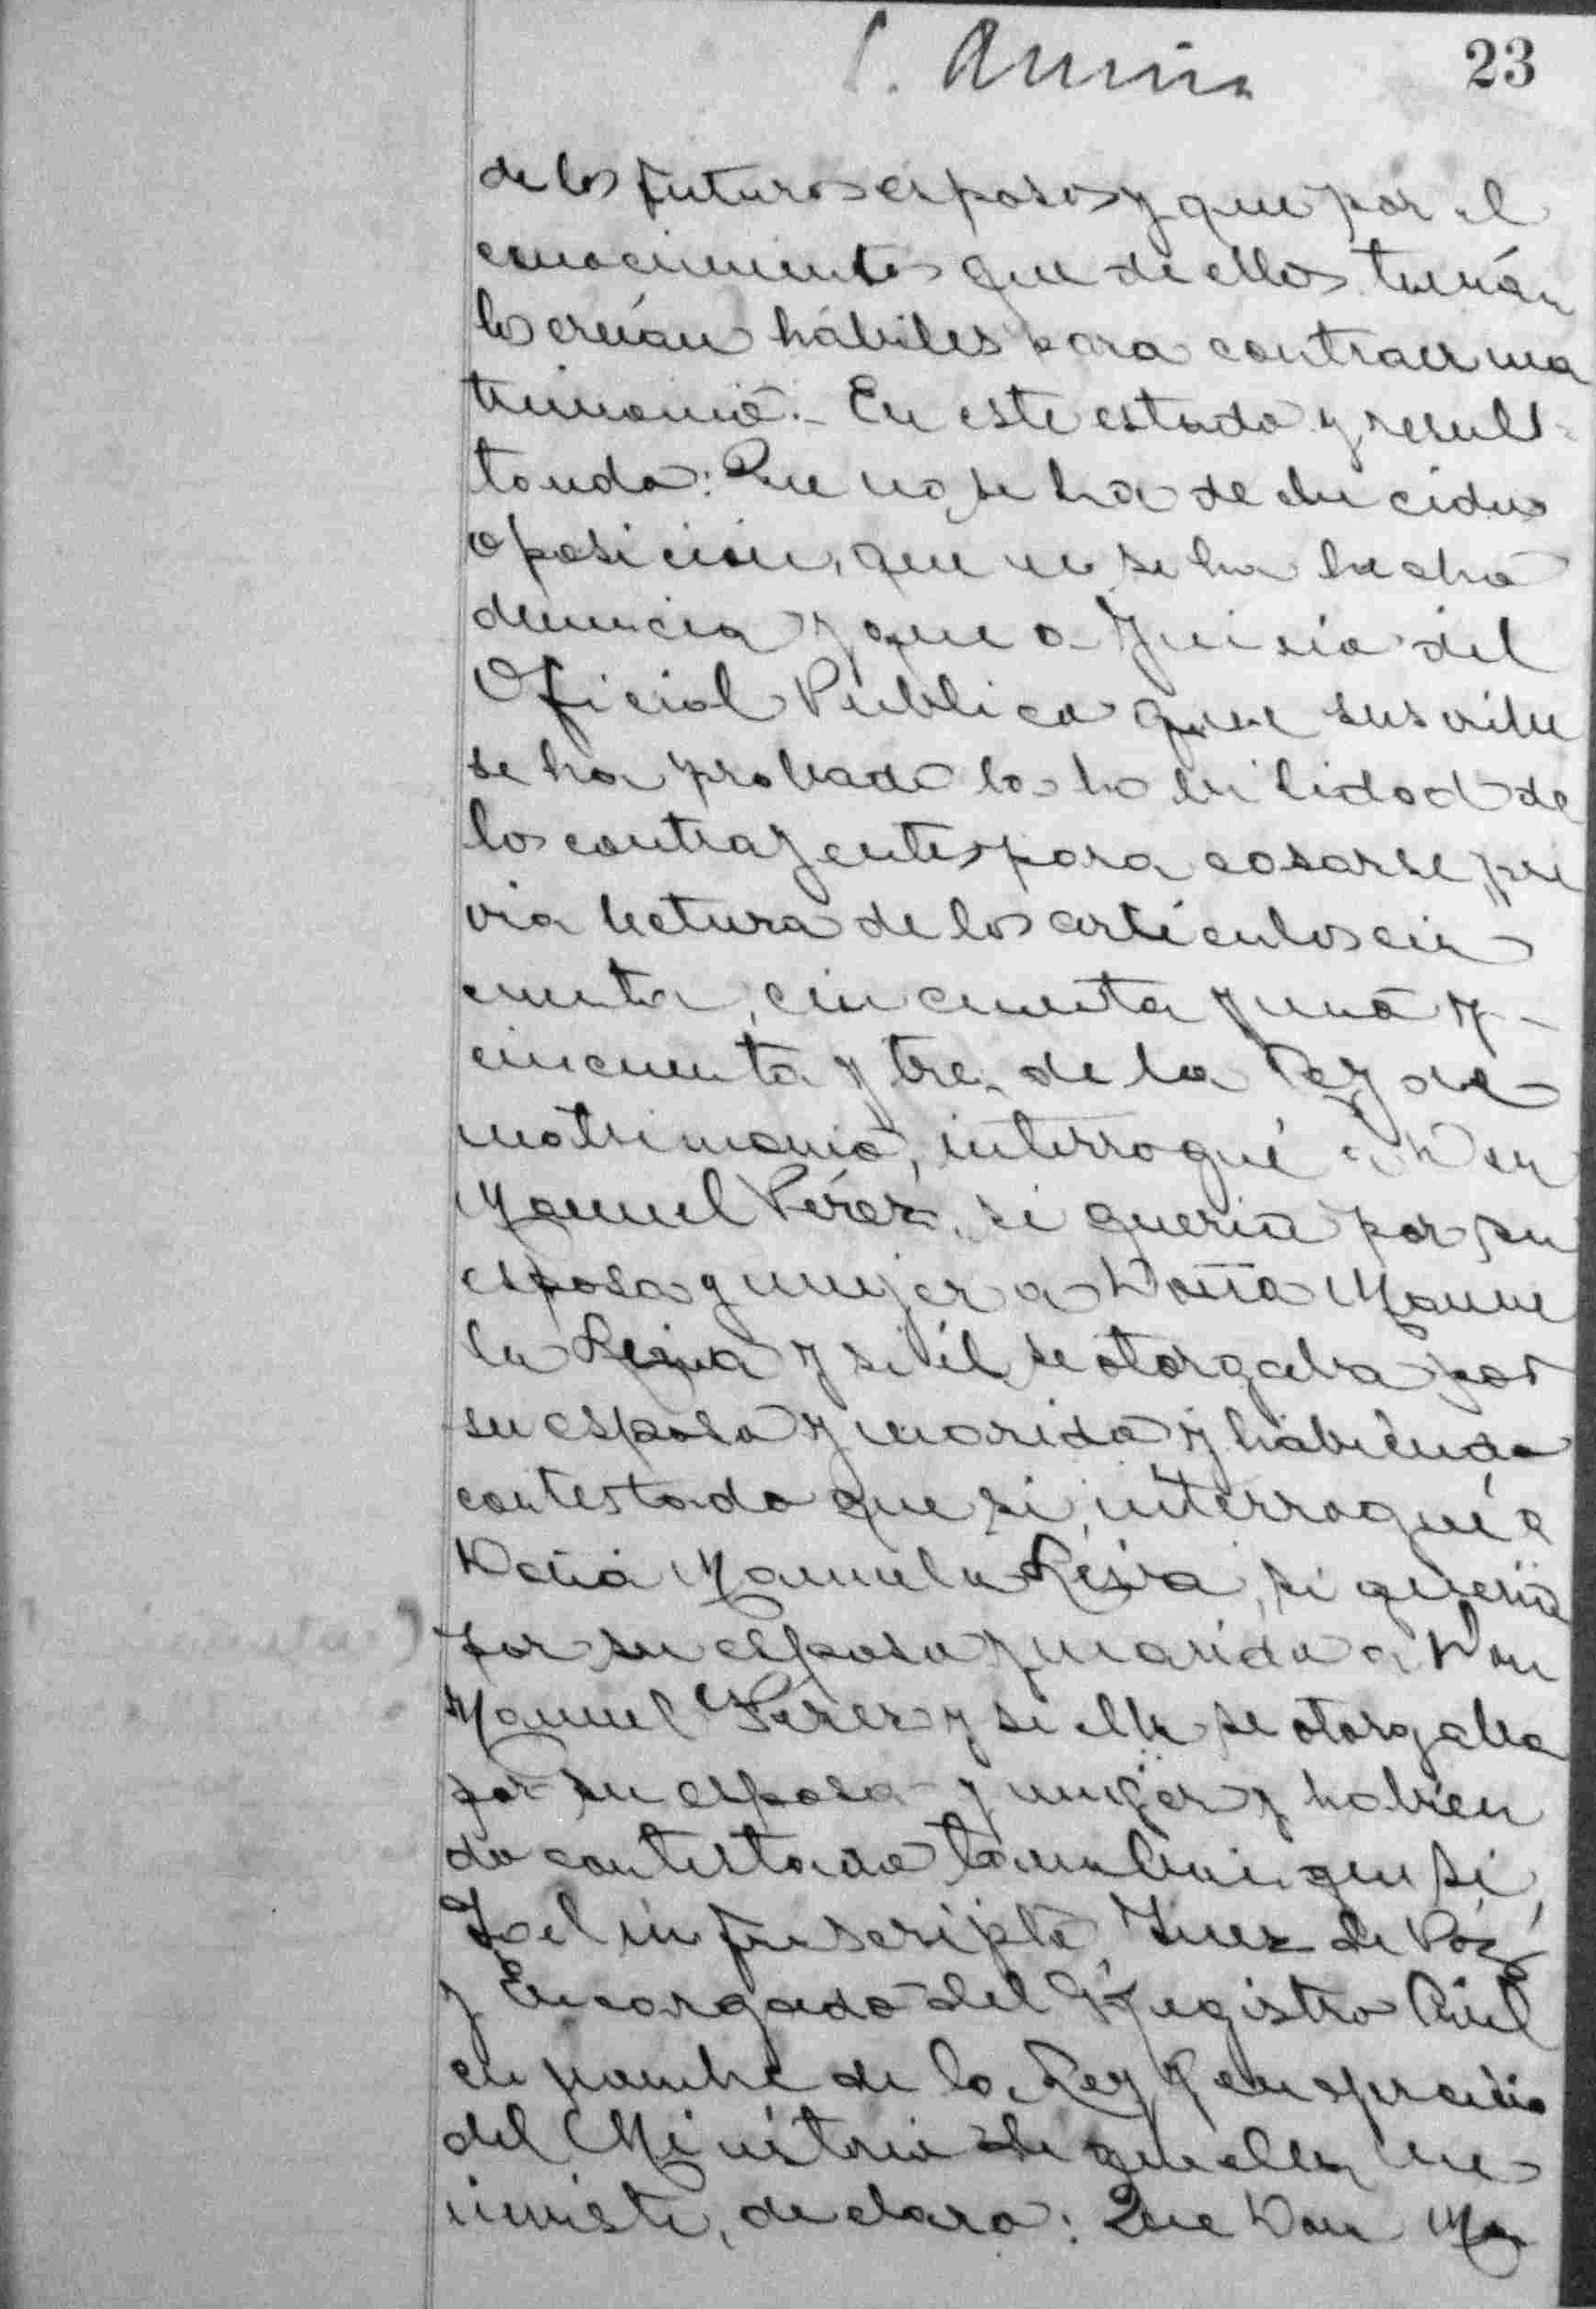 23
de los futuros esposos y que por el
conocimiento que de ellos tenían
los creían hábiles para contraer ma
trimonio.- En este estado y resul-
tando: Que no se ha deducido
oposición, que no se ha hecho
denuncia y que a juicio del
Oficial Publico que suscribe
se ha probado la habilidad de
los contrayentes para casarse, pre
via lectura de los artículos cin
cuenta, cincuenta y uno y-
cincuenta y tres de la Ley de
matrimonio, interrogué a Don
Manuel Pérez, si quería por su
esposa y mujer a Doña Manue
la y si él se otorgaba por
su esposo y marido y habiendo
contestado que si, interrogué a
Doña Manuela si quería
por su esposo y marido a Don
Manuel Perez y si ella se otorgaba
por su esposa y mujer y habien
do contestado tambien que si,
Yo el infrascripto, Juez de Páz
y Encargado del Registro Civil
en nombre de la Ley y en ejercicio
del Ministerio de que ella me
inviste, declaro: Que Don Ma